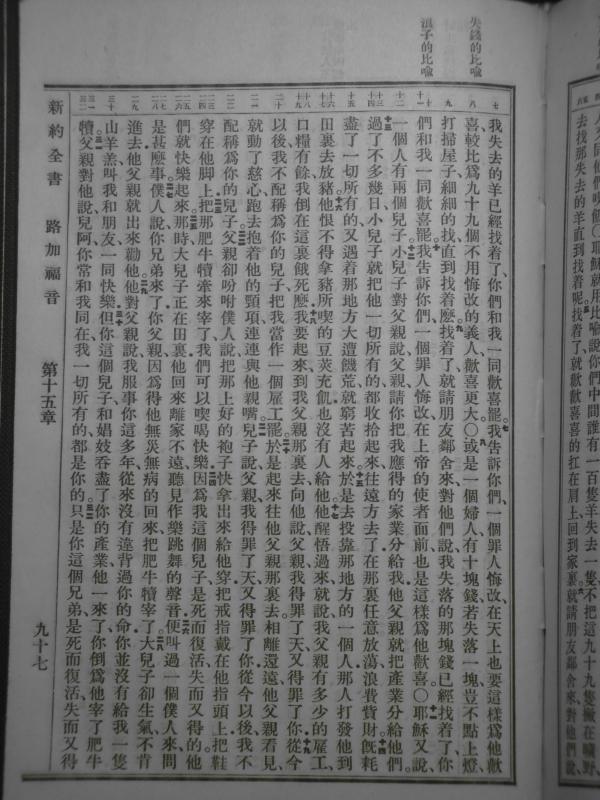 同他們喫飯耶穌就用比喻說你們中間誰有一百隻羊失去一隻不把這九十九隻撇在曠野
去找那失去的羊直到找着呢找着了就歡歡喜喜的扛在肩上回到家裏就請朋友鄰舍來對他們說
失錢的比喻
浪子的比喻
我失去的羊已經找着了、你們和我一同歡喜罷。我告訴你們、一個罪人悔改、在天上也要這樣爲他歡
喜、較比爲九十九個不用悔改的義人、歡喜更大。〇或是一個婦人、有十塊錢、若失落一塊、豈不點上燈、
打掃屋子、細細的找、直到找着麽。找着了、就請朋友鄰舍來、對他們說、我失落的那塊錢已經找着了、你
們和我一同歡喜罷。我告訴你們、一個罪人悔改、在上帝的使者面前、也是這樣爲他歡喜。〇耶穌又說、
一個人有兩個兒子。小兒子對父親說、父親請你把我應得的家業分給我、他父親就把產業分給他們。
過了不多幾日、小兒子就把他一切所有的、都收拾起來、往遠方去了、在那裏任意放蕩、浪費貲財。旣耗
盡了一切所有的、又遇着那地方大遭饑荒、就窮苦起來。於是去投靠那地方的一個人、那人打發他到
田裏去放豬。他恨不得拿豬所喫的豆莢充飢、也沒有人給他。他醒悟過來、就說、我父親有多少的雇工、
口糧有餘、我倒在這裏餓死麽。我要起來、到我父親那裏去、向他說、父親、我得罪了天、又得罪了你。從今
以後、我不配稱爲你的兒子、把我當作一個雇工罷。於是起來往他父親那裏去、相離還遠、他父親看見、
就動了慈心、跑去抱着他的頸項、連連與他親嘴。兒子說、父親、我得罪了天、又得罪了你、從今以後、我不
配稱爲你的兒子。父親卻吩咐僕人說、把那上好的袍子快拿出來給他穿、把戒指戴在他指頭上、把鞋
穿在他脚上。把那肥牛犢牽來宰了、我們可以喫喝快樂。因爲我這個兒子、是死而復活、失而又得的、他
們就快樂起來。那時大兒子正在田裏、他回來離家不遠、聽見作樂跳舞的聲音。便叫過一個僕人來、問
是甚麽事。僕人說、你兄弟來了、你父親因爲得他無災無病的回來、把肥牛犢宰了。大兒子卻生氣、不肯
進去、他父親就出來勸他。他對父親說、我服事你這多年、從來沒有違背過你的命、你並沒有給我一隻
山羊羔、叫我和朋友一同快樂。但你這個兒子、和娼妓吞盡了你的產業、他一來了、你倒爲他宰了肥牛
犢。父親對他說、兒阿、你常和我同在、我一切所有的、都是你的。只是你這個兄弟、是死而復活、失而又得
新約全書　路加福音　第十五章　九十七